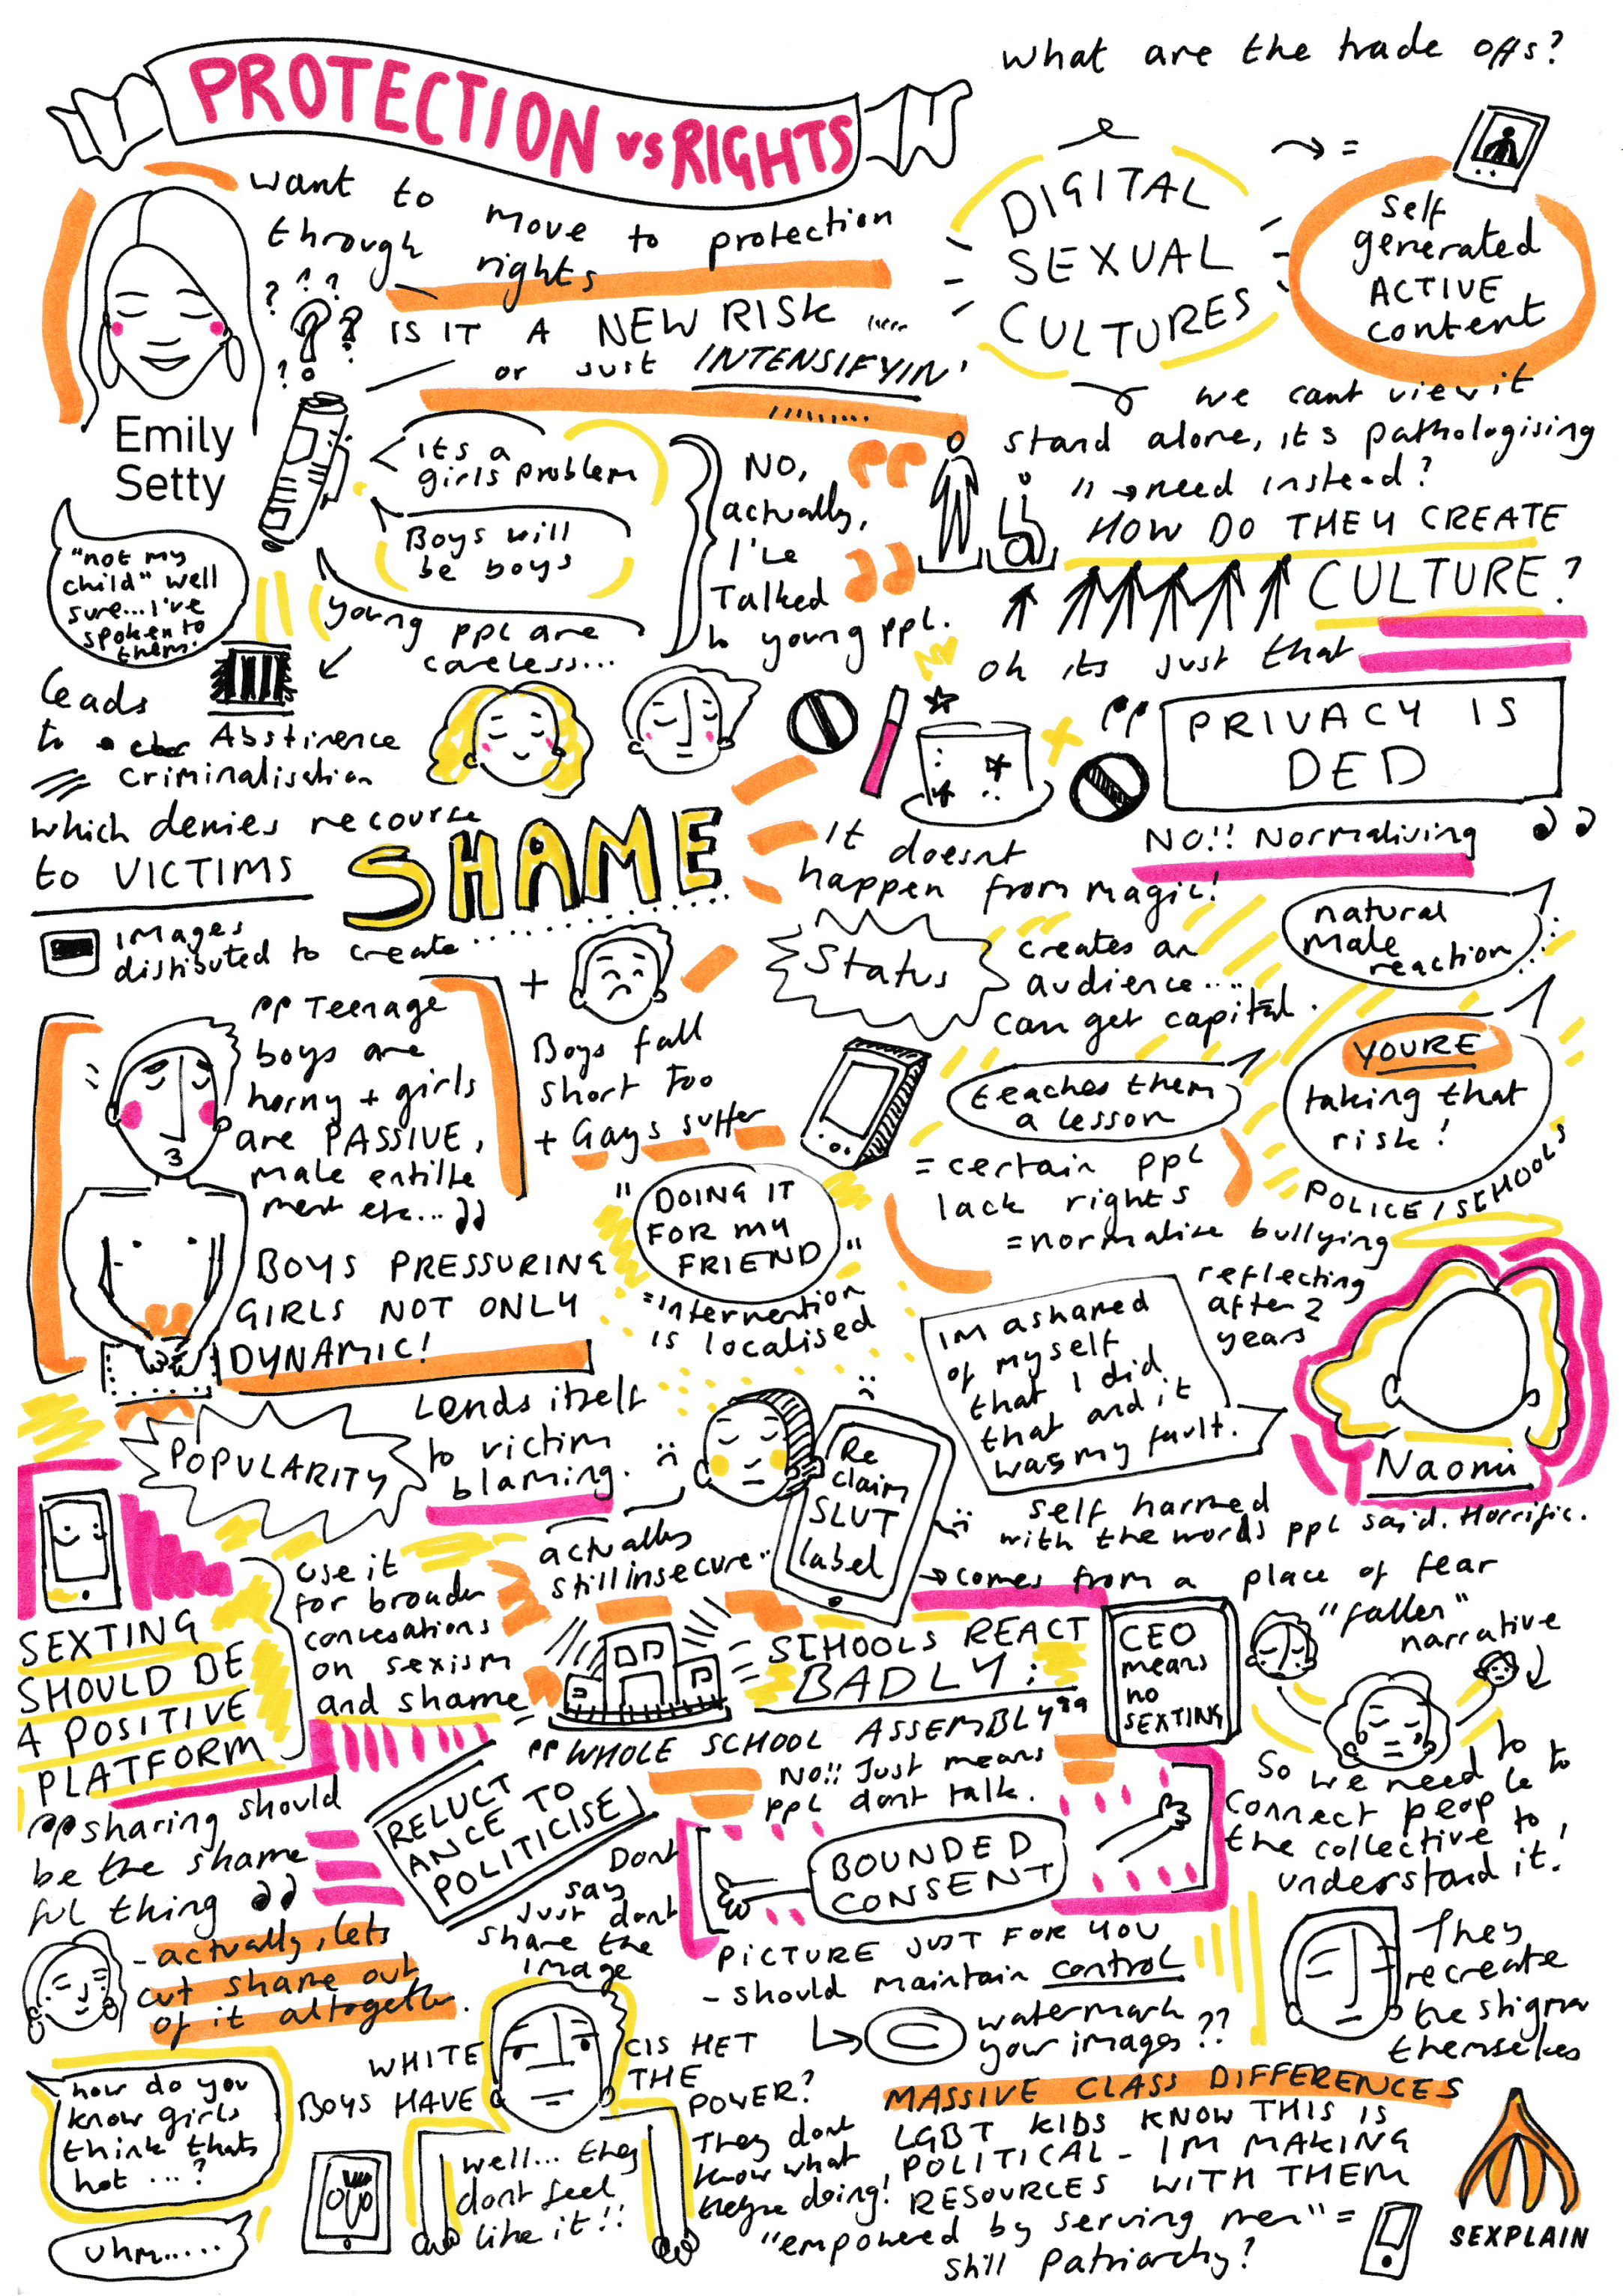 PROTECTION vs RIGHTS
what are the trade offs?
want to
move to protection
through
rights
Emily
Setty
IS IT A NEW RISK ....
or just INTENSIFYIN'
DIGITAL
SEXUAL
CULTURES
=
self
generated
ACTIVE
content
we cant view it
stand alone, its pathologising
" → need instead?
HOW DO THEY CREATE
CULTURE?
oh its just that
its a
girls problem
Boys will
be boys
young ppl are
careless...
NO,
actually,
I've
Talked
to young ppl.
"not my
child" well
sure... I've
spoken to
them.
leads
to
Abstinence
Criminalisation
which denies recourse
to VICTIMS
SHAME
images
distibuted to create
PRIVACY IS
DED
NO!! Normalising
It doesnt
happen from magic!
Status
creates an
audience....
can get capital.
natural
male
reaction
YOURE
taking that
risk!
POLICE / SCHOOLS
teaches them
a lesson
= certain ppl
lack rights
= normalise bullying
Teenage
boys are
horny + girls
are PASSIVE,
male entitle
ment etc...
+
Boys fall
short too
+ Gays suffer
BOYS PRESSURING
GIRLS NOT ONLY
DYNAMIC!
"DOING IT
FOR MY
FRIEND"
= intervention
is localised
reflecting
after 2
years
IM ashamed
of myself
that I did
that and it
was my fault.
Naomi
self harmed
with the words ppl said. Horrific.
POPULARITY
Lends itself
to victim
blaming.
Re
claim
SLUT
label
actually
still insecure..
→ comes from a place of fear
SEXTING
SHOULD BE
A POSITIVE
PLATFORM
use it
for broader
convesations
on sexism
and shame
SCHOOLS REACT
BADLY:
"WHOLE SCHOOL ASSEMBLY"
NO!! Just means
ppl dont talk.
CEO
means
no
SEXTING
"fallen"
narrative
So we need to
connect people to
the collective to
understand it!
sharing should
be the shame
ful thing
- actually, lets
cut shame out
of it altogether.
RELUCT
ANCE TO
POLITICISE
Dont
say
Just dont
share the
image
BOUNDED
CONSENT
PICTURE JUST FOR YOU
- should maintain control
© watermark
your images??
They
recreate
the stigma
themselves
how do you
know girls
think thats
hot ...?
uhm.....
WHITE
CIS HET
BOYS HAVE
THE
POWER?
well... they
dont feel
like it!!
They dont
know what
theyre doing!
MASSIVE CLASS DIFFERENCES
LGBT KIDS KNOW THIS IS
POLITICAL - IM MAKING
RESOURCES WITH THEM
"empowered by serving men" =
still patriarchy?
SEXPLAIN